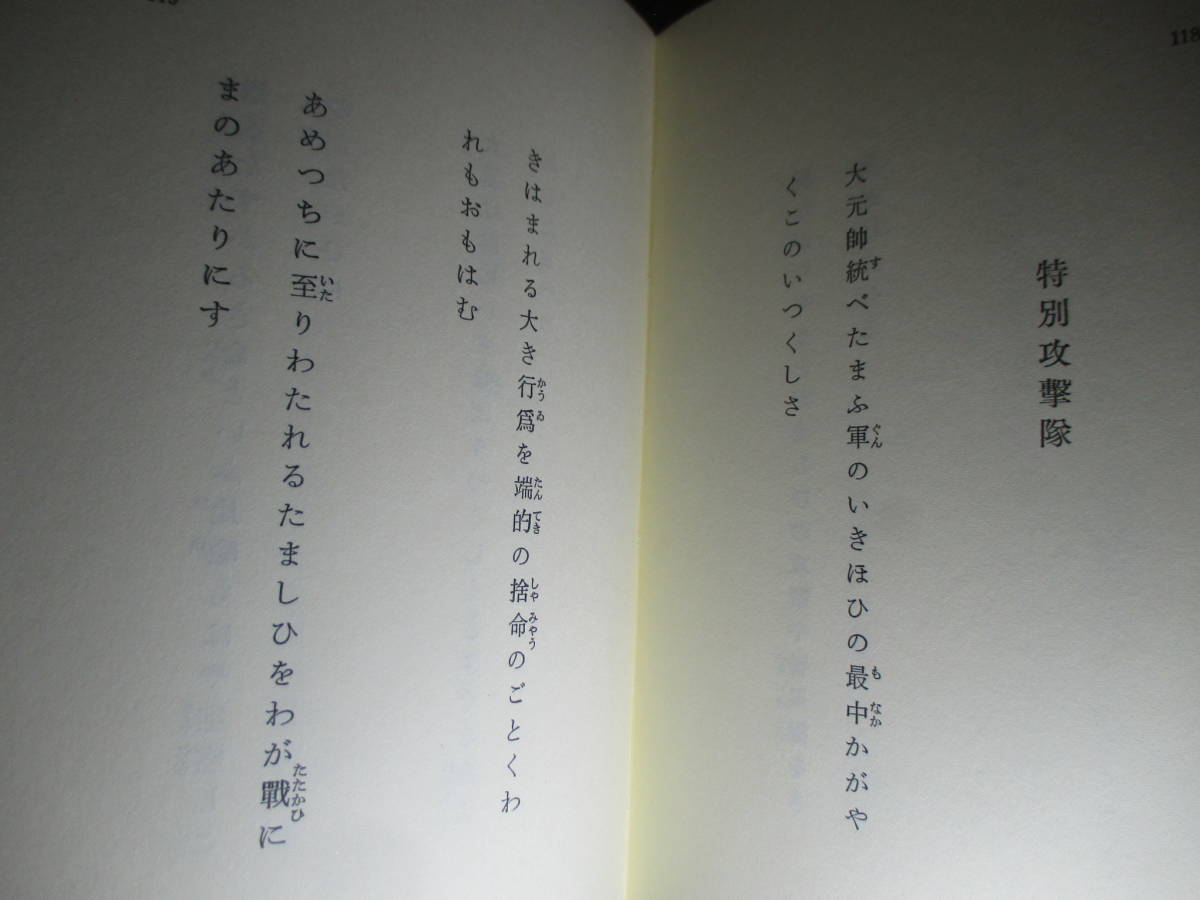 118
特別攻擊隊
大元帥統べたまふ軍のいきほひの最中かがや
くこのいつくしさ
きはまれる大き行爲を端的の捨命のごとくわ
れもおもはむ
あめつちに至りわたれるたましひをわが戰に
まのあたりにす